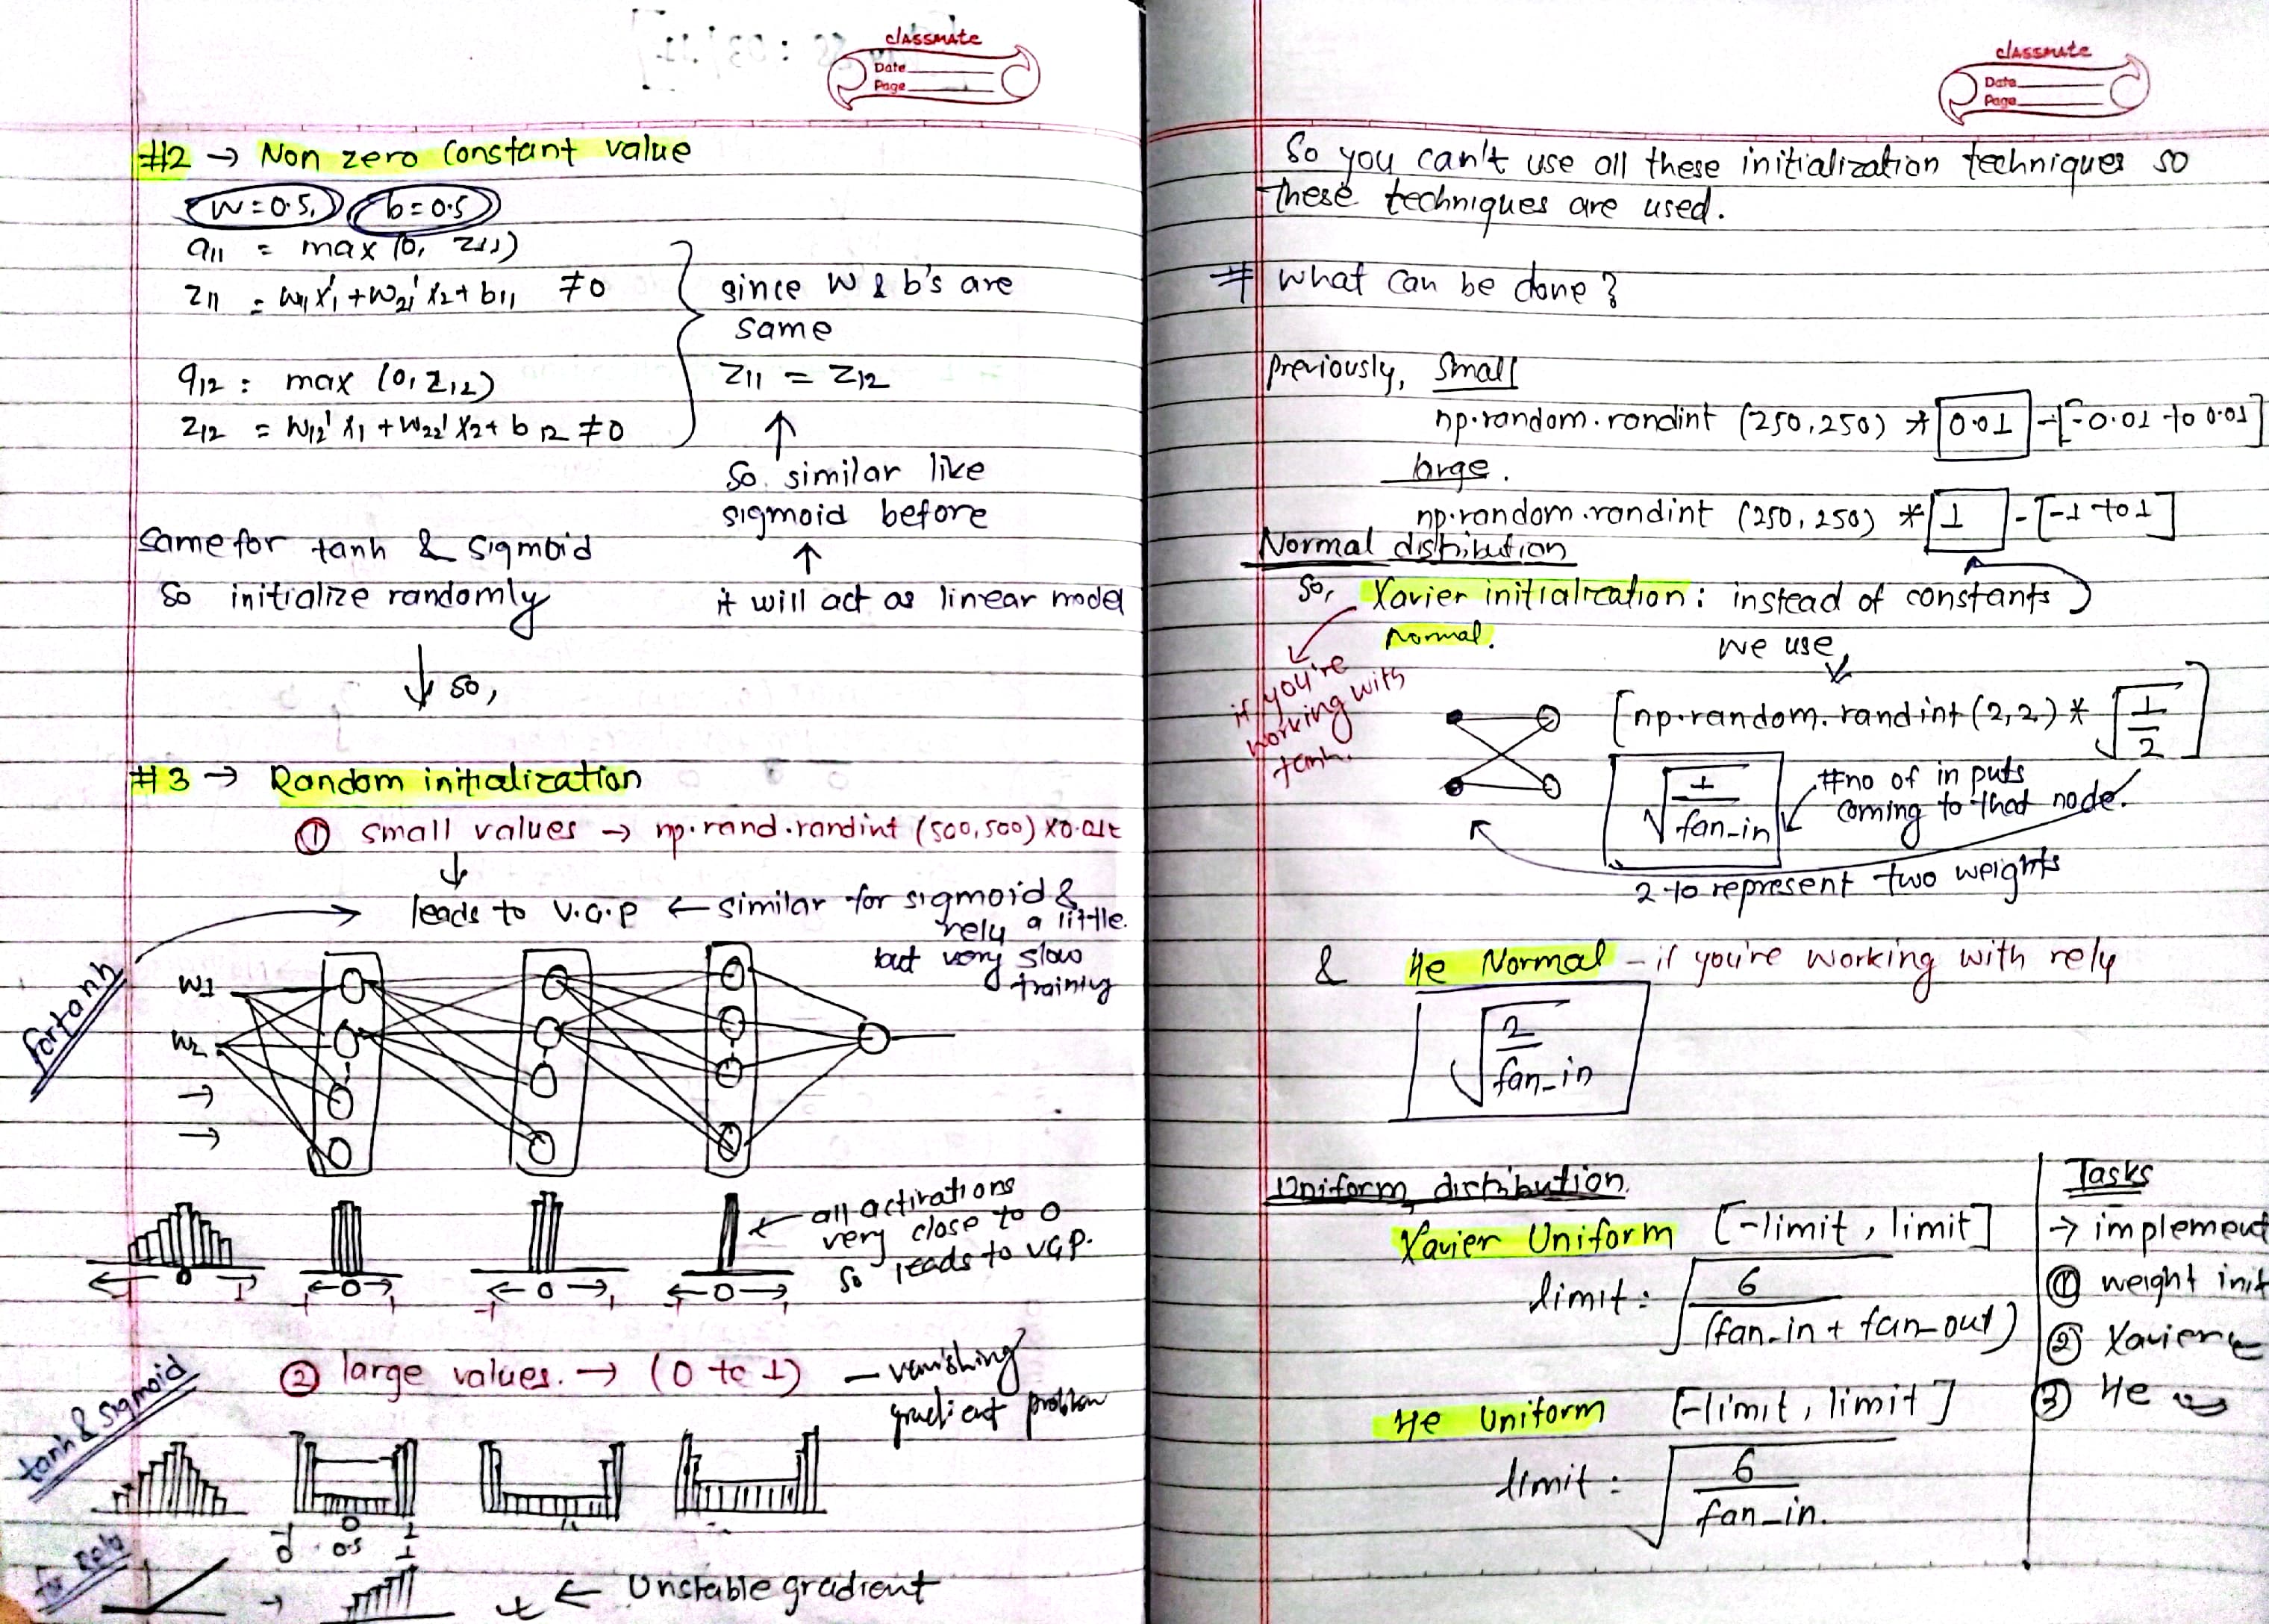 classmate
Date
Page
#2 → Non zero Constant value
W=0.5, b=0.5
a11 = max (0, z11)
z11 = w11'x1 + w21'x2 + b11 ≠0
a12 = max (0, z12)
z12 = w12'x1 + w22'x2 + b12 ≠0
since w & b's are
same
z11 = z12
↑
so similar like
sigmoid before
↑
it will act as linear model
same for tanh & sigmoid
so initialize randomly
↓ so,
#3 → Random initialization
① small values → np.rand.randint (500,500) x0.01
↓
leads to V.G.P ← similar for sigmoid &
relu a little.
but very slow
training
for tanh
W1
W2
→
→
← all activations
very close to 0
so leads to VGP.
← 0 → 1
-1 ← 0 → 1
-1 ← 0 → 1
-1 ← 0 → 1
② large values. → (0 to 1) – vanishing
gradient problem
tanh & sigmoid
0 1
0 0.5 1
for Relu
→ ← Unstable gradient
classmate
Date
Page
So you can't use all these initialization techniques so
these techniques are used.
# What can be done?
previously, small
np.random.randint (250,250) * 0.01 - [-0.01 to 0.01]
large.
np.random.randint (250,250) * 1 - [-1 to 1]
Normal distribution
So, Xavier initialization : instead of constants
Normal. we use
if you're
working with
tanh.
[np.random.randint (2,2) * √1/2]
√1/fan_in #no of inputs
coming to that node.
2 to represent two weights
& He Normal – if you're working with relu
√2/fan_in
Uniform distribution.
Xavier Uniform [-limit, limit]
limit: √6/(fan_in + fan_out)
He Uniform [-limit, limit]
limit: √6/fan_in.
Tasks
→ implement
① weight init
② Xavier
③ He